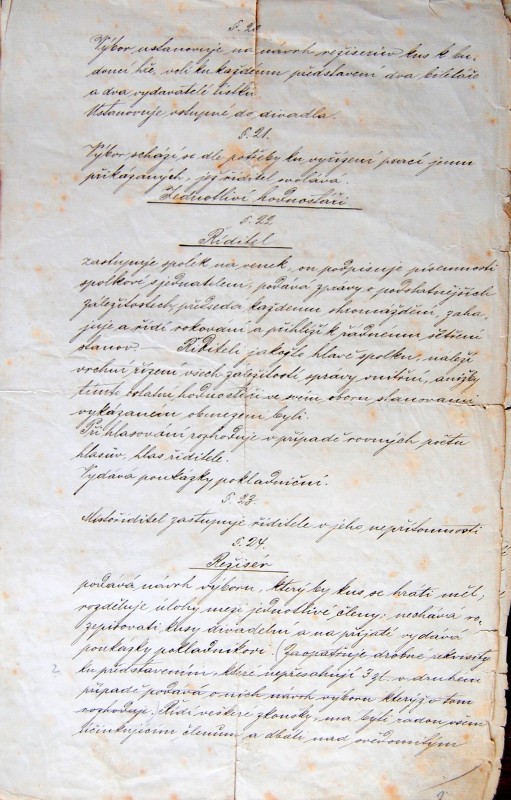 §. 20
Výbor ustanovuje na návrh režiserův kus k bu-
doucí hře, volí ku každému představení dva biletáře
a dva vydavatelé lístků
Ustanovuje vstupné do divadla.
§. 21.
Výbor schází se dle potřeby ku vyřízení prací jemu
přikázaných, jej řiditel svolává.
Jednotliví hodnostáři
§. 22
Řiditel
zastupuje spolek na venek, on podpisuje písemnosti
spolkové s jednatelem, podává zprávy o podstatnějších
záležitostech, předsedá každému shromáždění, zaha-
juje a řídí rokování a přihlíží k řádnému šetření
stanov. Řiditeli jakožto hlavě spolku, náleží
vrchní řízení všech záležitostí správy vnitřní, anižby
tímto ostatní hodnostáři ve svém oboru stanovami
vykázaném obmezeni byli.
Při hlasování rozhoduje v případě rovných počtu
hlasův, hlas řiditele.
Vydává poukázky pokladniční.
§. 23.
Místořiditel zastupuje řiditele v jeho nepřítomnosti
§. 24.
Režisér
podává návrh výboru, který by kus se hráti měl,
rozděluje úlohy mezi jednotlivé členy, nechává ro-
zepisovati kusy divadelní a na přijaté vydává
poukázky pokladníkovi. (Zaopatřuje drobné rekvisity
ku představením, které nepřesahují 3 zl. v druhém
případě podává o nich návrh výboru kterýž o tom
rozhoduje.) Řídí veškeré zkoušky, má býti radou všem
účinkujícím členům a dbáti nad svědomitým